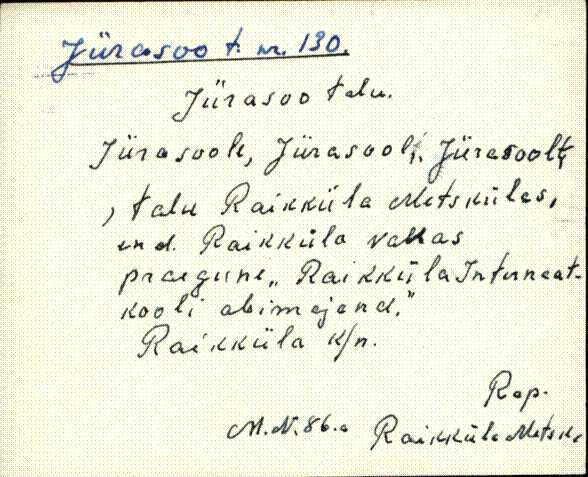 Jürasoo t. nr. 130.
Jürasoo talu.
Jürasoole, Jürasool, Jürasoolt,
, talu Raikküla Metskülas,
end. Raikküla vallas
praegune „Raikküla Internaat-
kooli abimajand."
Raikküla k/n.
Rap.
M.N. 86.a Raikküla Metsk.